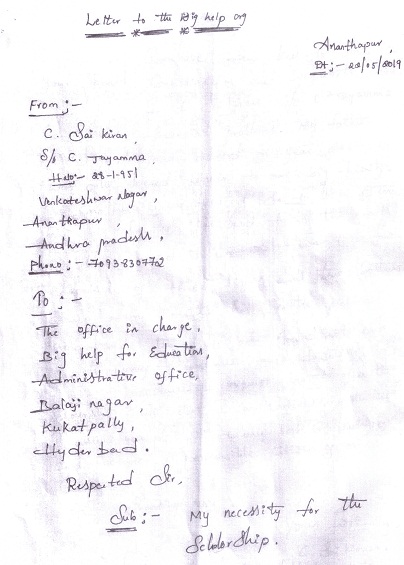 Letter to the Big help org
Ananthapur,
Dt:- 22/05/2019
From:-
C. Sai kiran,
S/o C. Jayamma,
H.No:- 28-1-951
Venkateshwar Nagar,
Ananthapur,
Andhra pradesh.
Phono:- 7093-8307702
To:-
The office in charge,
Big help for Education,
Administrative office,
Balaji nagar,
Kukatpally,
Hyderbad.
Respected Sir,
Sub:- My necessity for the
Scholorship.